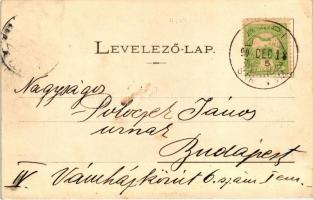 LEVELEZŐ-LAP.
DEC 13
5
Nagyságos
János
urnak
Budapest
IV. Vámházkörút 6. szám I em.